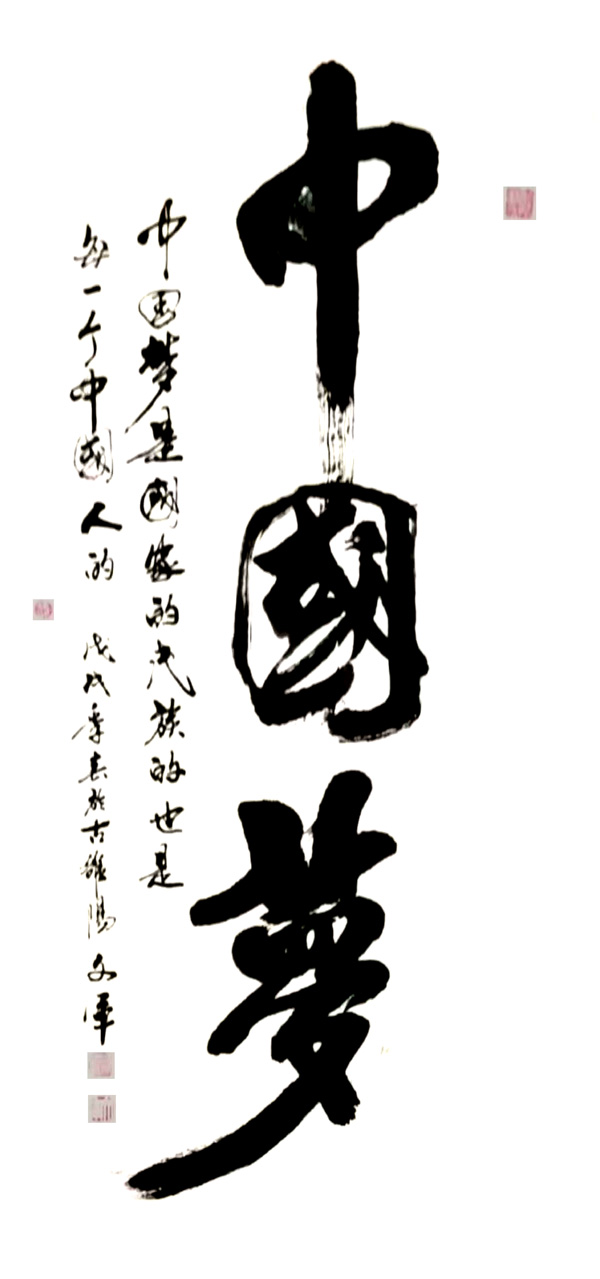 中國夢
中国夢是國家的民族的也是
每一个中國人的 戊戌季春於古雒陽 文軍